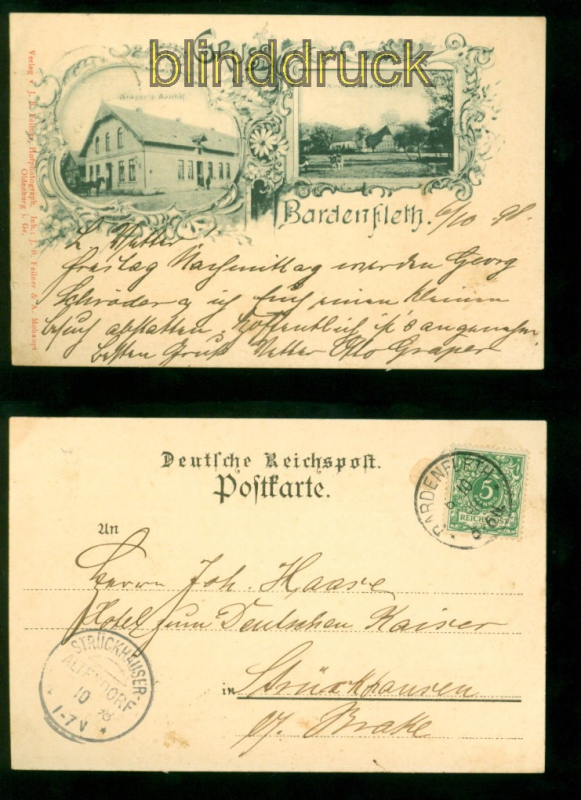 blinddruck
Gruss
Bardenfleth. 6/10 98.
L. Vetter
Freitag Nachmittag werden Georg
Schröder u ich Euch einen kleinen
Besuch abstatten. Hoffentlich ist's angenehm.
Besten Gruß Vetter Otto Gräper
Oldenburg i. Gr.
Deutsche Reichspost.
Postkarte.
BARDENFLETH
5
REICHSPOST
An
Herrn Joh. Haase
Hotel zum Deutschen Kaiser
in Strückhausen
p/. Brake
STRÜCKHAUSER-
ALTENDORF
10 98
1-7V